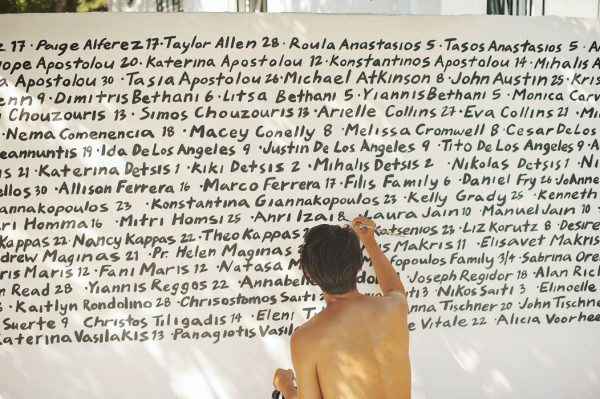 17 · Paige Alferez 17 · Taylor Allen 28 · Roula Anastasios 5 · Tasos Anastasios 5 ·
Apostolou 20 · Katerina Apostolou 12 · Konstantinos Apostolou 14 · Mihalis
Apostolou 30 · Tasia Apostolou 26 · Michael Atkinson 8 · John Austin 25 · Kris
9 · Dimitris Bethani 6 · Litsa Bethani 5 · Yiannis Bethani 5 · Monica
Chouzouris 13 · Simos Chouzouris 13 · Arielle Collins 27 · Eva Collins 21 ·
· Nema Comenencia 18 · Macey Conelly 8 · Melissa Cromwell 8 · Cesar De Los
19 · Ida De Los Angeles 9 · Justin De Los Angeles 9 · Tito De Los Angeles 9 ·
21 · Katerina Detsis 1 · Kiki Detsis 2 · Mihalis Detsis 2 · Nikolas Detsis 1 ·
30 · Allison Ferrera 16 · Marco Ferrera 17 · Filis Family 6 · Daniel Fry 26 · JoAnne
23 · Konstantina Giannakopoulos 23 · Kelly Grady 25 · Kenneth
Homma 16 · Mitri Homsi 25 · Anri Izai 8 · Laura Jain 10 · Manuel Jain 10 ·
Kappas 22 · Nancy Kappas 22 · Theo Kappas 23 · Liz Korutz 8 · Desire
Maginas 21 · Pr. Helen Maginas Makris 11 · Elisavet Makris
Maris 12 · Fani Maris 12 · Natasa Family 3/4 · Sabrina
Read 28 · Yiannis Reggos 22 · Joseph Regidor 18 · Alan
· Kaitlyn Rondolino 28 · Chrisostomos Saiti 3 · Nikos Saiti 3 · Elinoelle
Suerte 9 · Christos Tiligadis 14 · Eleni Tischner 20 · John
Katerina Vasilakis 13 · Panagiotis Vitale 22 · Alicia